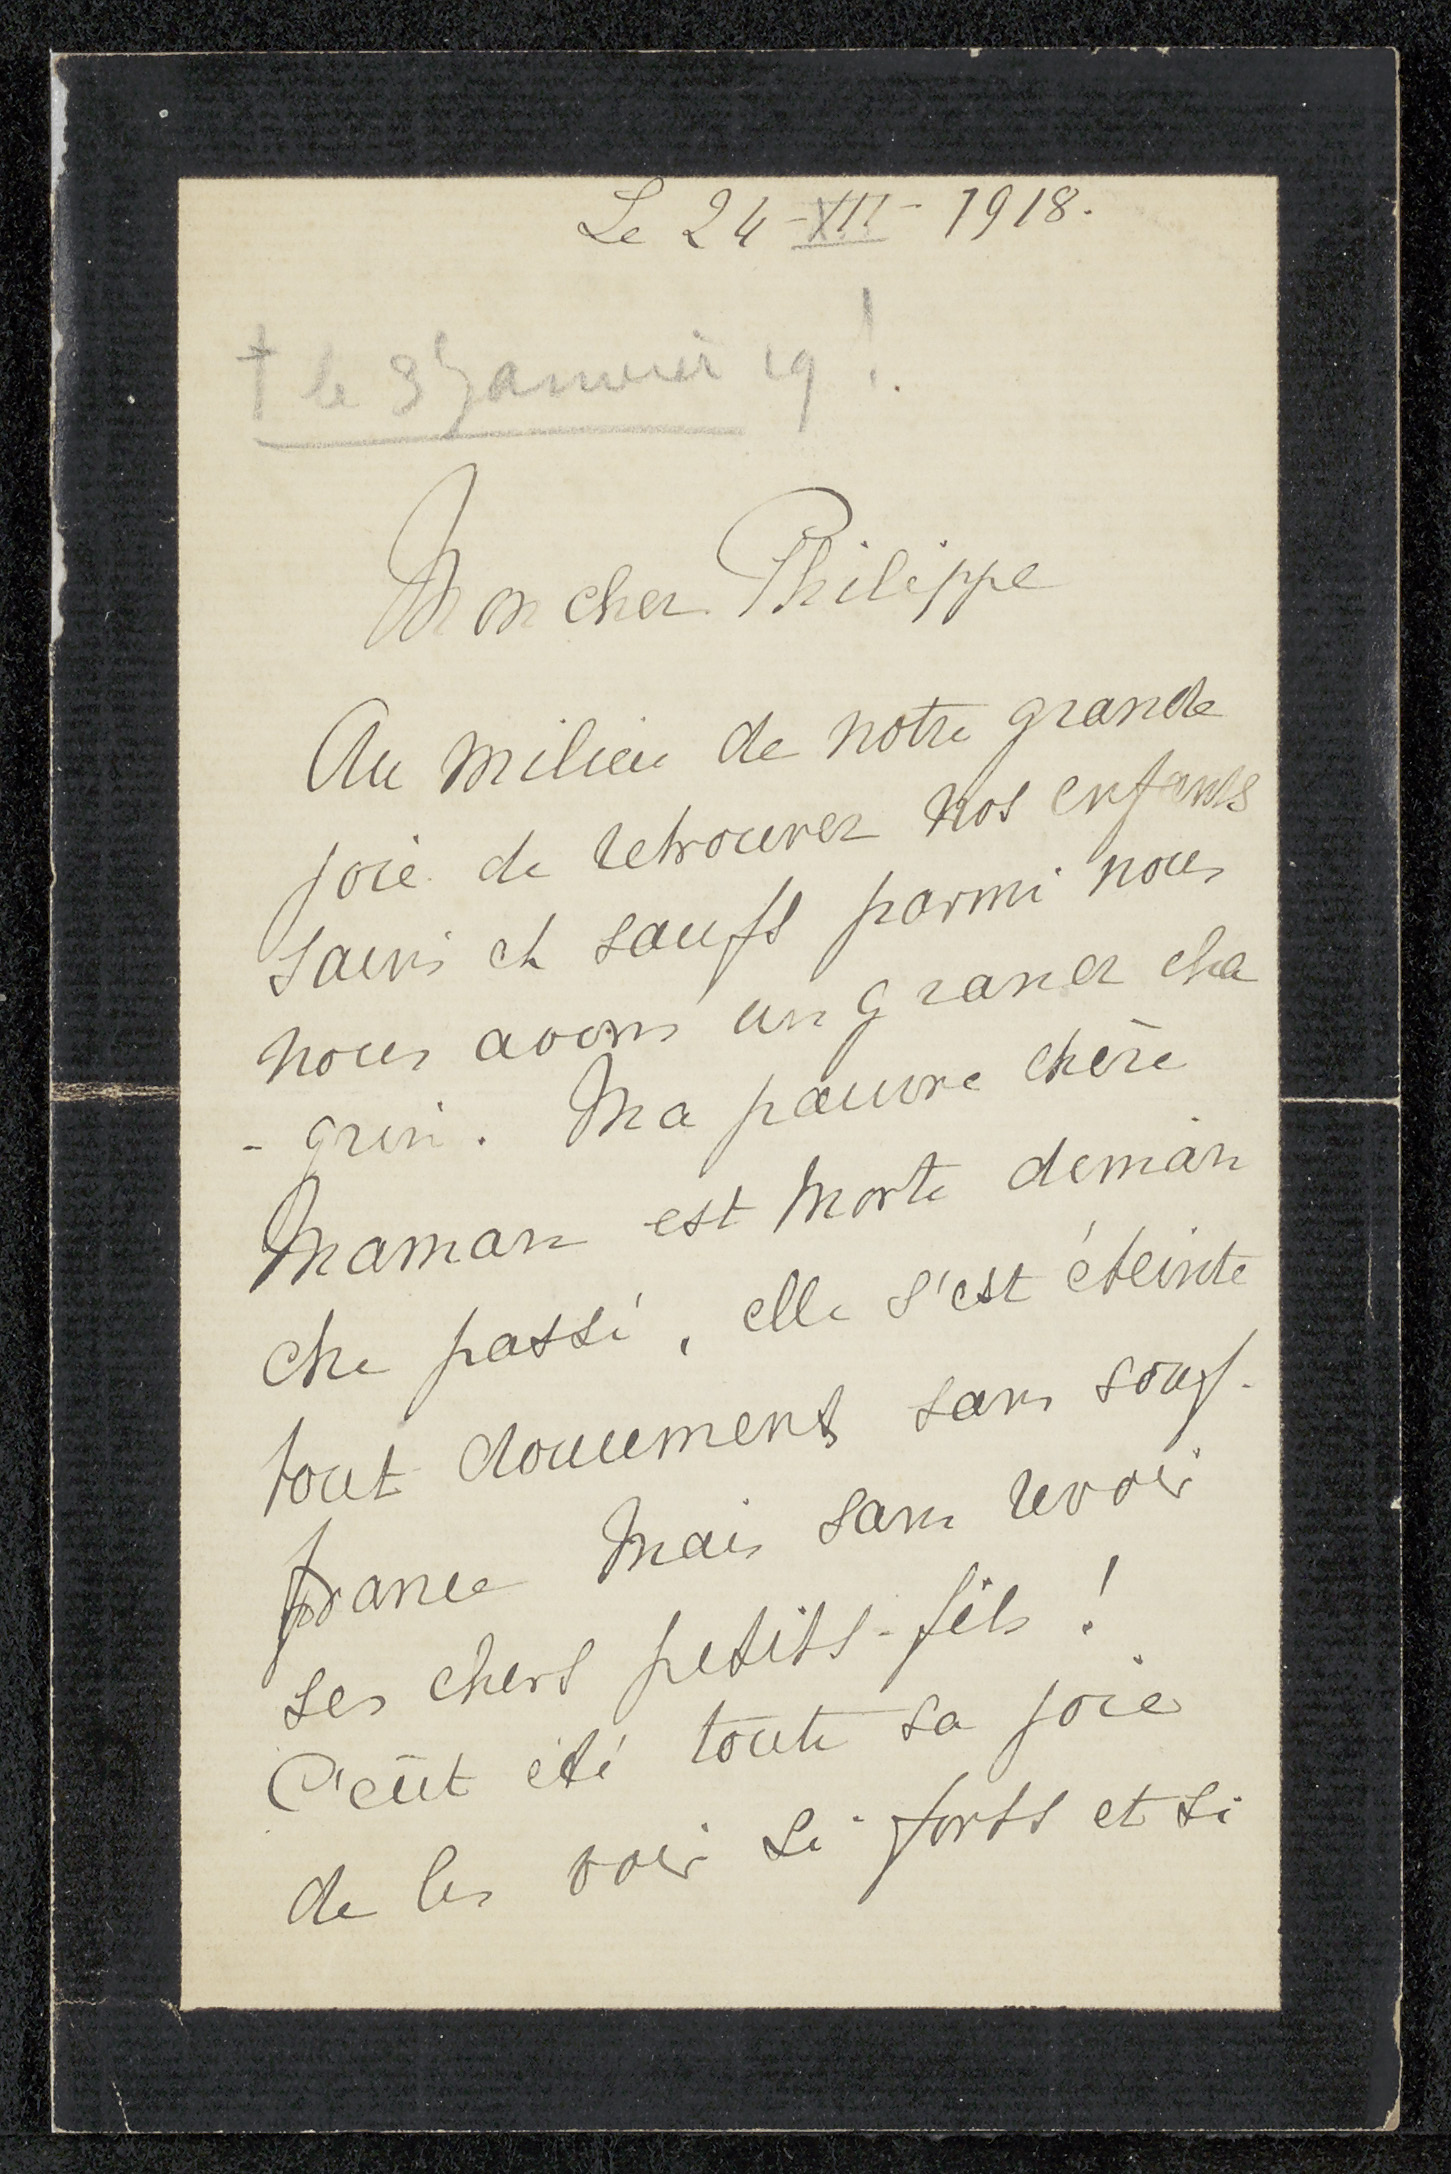 Le 24 - XII - 1918.
† le 3 Janvier 19 !.
Mon cher Philippe
Au milieu de notre grande
joie de retrouver nos enfants
sains et saufs parmi nous
nous avons un grand cha
- grin. Ma pauvre chère
Maman est morte diman
che passé, elle s'est éteinte
tout doucement sans souf-
france mais sans revoir
ses chers petits-fils !
C'eût été toute sa joie
de les voir si forts et si